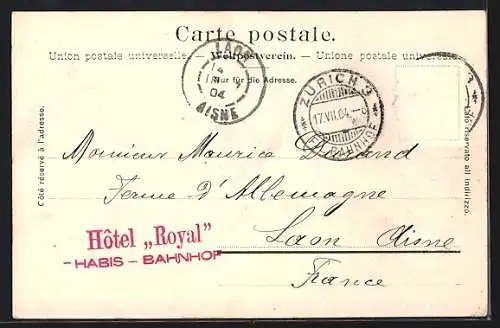 Carte postale.
Union postale universelle. — Weltpostverein. — Unione postale universale.
Nur für die Adresse.
LAON
14
04
AISNE
ZÜRICH 3
17.VII.04.
BAHNHOF
Côté réservé à l'adresse.
Lato riservato all indirizzo.
Monsieur Maurice
Ferme d'Allemagne
Laon Aisne
France
Hôtel „Royal"
- HABIS - BAHNHOF